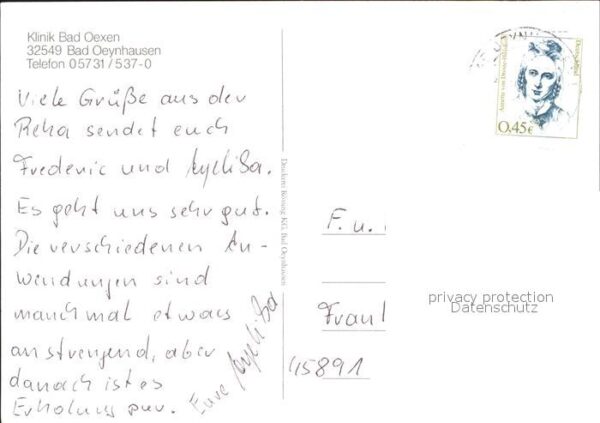 Klinik Bad Oexen
32549 Bad Oeynhausen
Telefon 05731/537-0
Viele Grüße aus der
Reha sendet euch
Frederic und
Es geht uns sehr gut.
Die verschiedenen An-
wendungen sind
manchmal etwas
anstrengend, aber
danach ist es
Erholung pur.
Eure
Druckerei Rösing KG, Bad Oeynhausen
Deutschland
Annette von Droste-Hülshoff
0,45€
F. u.
Fran
45891
privacy protection
Datenschutz